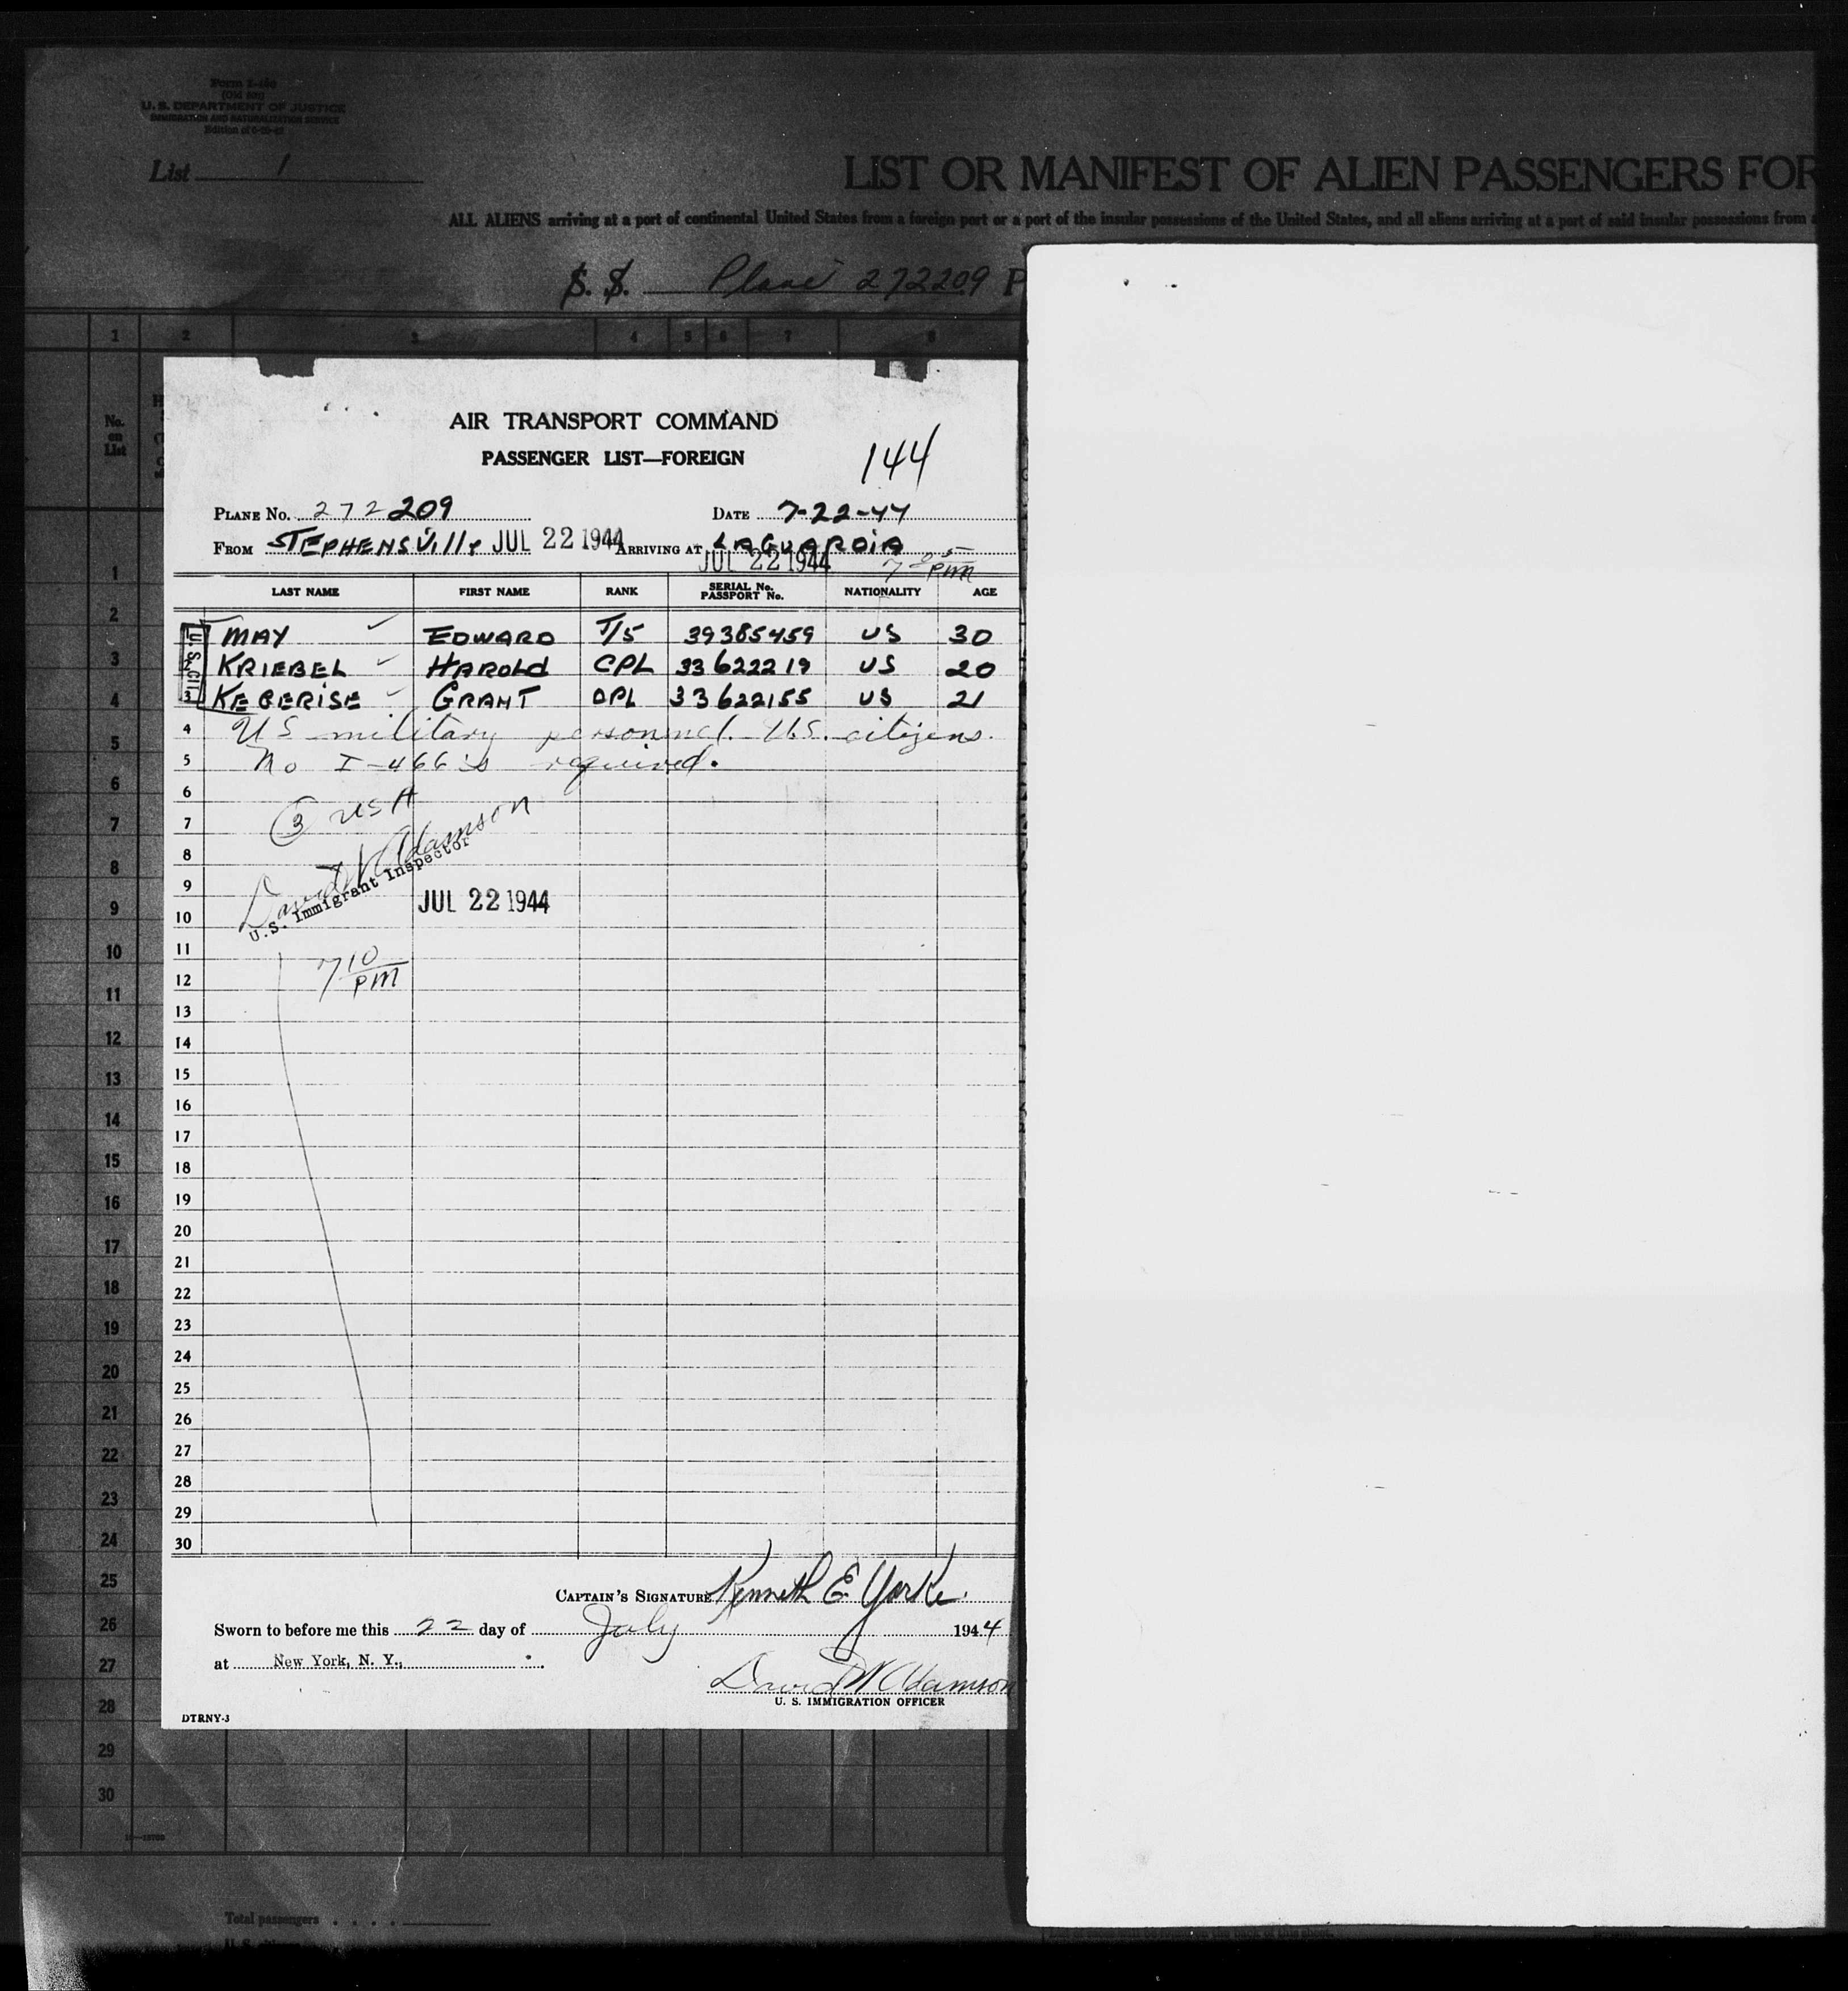 Form I-466
(Old 500)
U. S. DEPARTMENT OF JUSTICE
IMMIGRATION AND NATURALIZATION SERVICE
List 1
LIST OR MANIFEST OF ALIEN PASSENGERS FOR
ALL ALIENS arriving at a port of continental United States from a foreign port or a port of the insular possessions of the United States, and all aliens arriving at a port of said insular possessions from
S. S. Plane 272209 P
1 2 3 4 5 6 7 8
No. on List
AIR TRANSPORT COMMAND
PASSENGER LIST—FOREIGN
144
PLANE No. 272209 DATE 7-22-44
FROM STEPHENSVILLE JUL 22 1944 ARRIVING AT LAGUARDIA
JUL 22 1944 7 05 PM
LAST NAME FIRST NAME RANK SERIAL No. PASSPORT No. NATIONALITY AGE
U. S. CIT.
MAY EDWARD T/5 39385459 US 30
KRIEBEL HAROLD CPL 33622219 US 20
KEGERISE GRANT CPL 33622155 US 21
4 US military personnel. U.S. citizens.
5 No I-466's required.
6
7 3 USA
8 David W Adamson
9 U.S. Immigrant Inspector
10 JUL 22 1944
11
12 7 10 PM
13
14
15
16
17
18
19
20
21
22
23
24
25
26
27
28
29
30
CAPTAIN'S SIGNATURE Kenneth E. Yorke
Sworn to before me this 22 day of July 1944
at New York, N. Y.,
David W Adamson
U. S. IMMIGRATION OFFICER
DTRNY-3
1
2
3
4
5
6
7
8
9
10
11
12
13
14
15
16
17
18
19
20
21
22
23
24
25
26
27
28
29
30
Total passengers